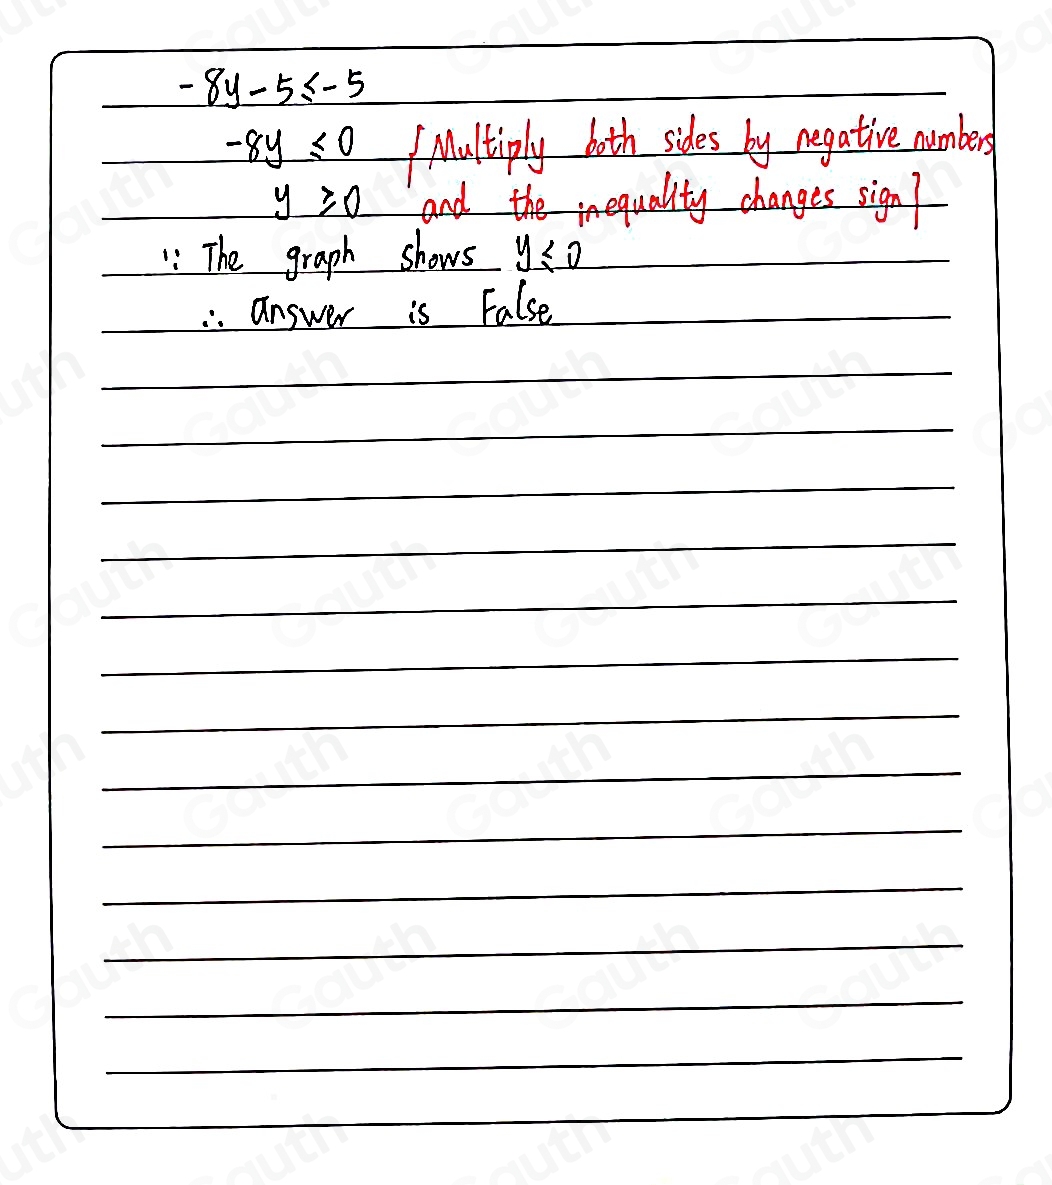 -8y-5≤-5
-8y ≤0 [Multiply both sides by negative numbers
y ≥0 and the inequality changes sign]
∵ The graph shows y≤0
∴ answer is False